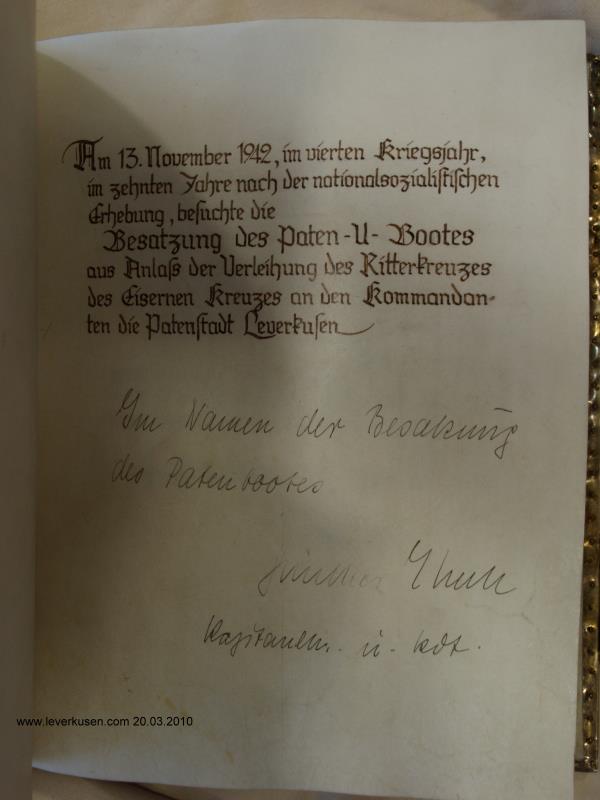 Am 13. November 1942, im vierten Kriegsjahr,
im zehnten Jahre nach der nationalsozialistischen
Erhebung, besuchte die
Besatzung des Paten-U-Bootes
aus Anlaß der Verleihung des Ritterkreuzes
des Eisernen Kreuzes an den Kommandan-
ten die Patenstadt Leverkusen
Im Namen der Besatzung
des Patenbootes
Günther
Kapitänltn. u. Kdt.
www.leverkusen.com 20.03.2010